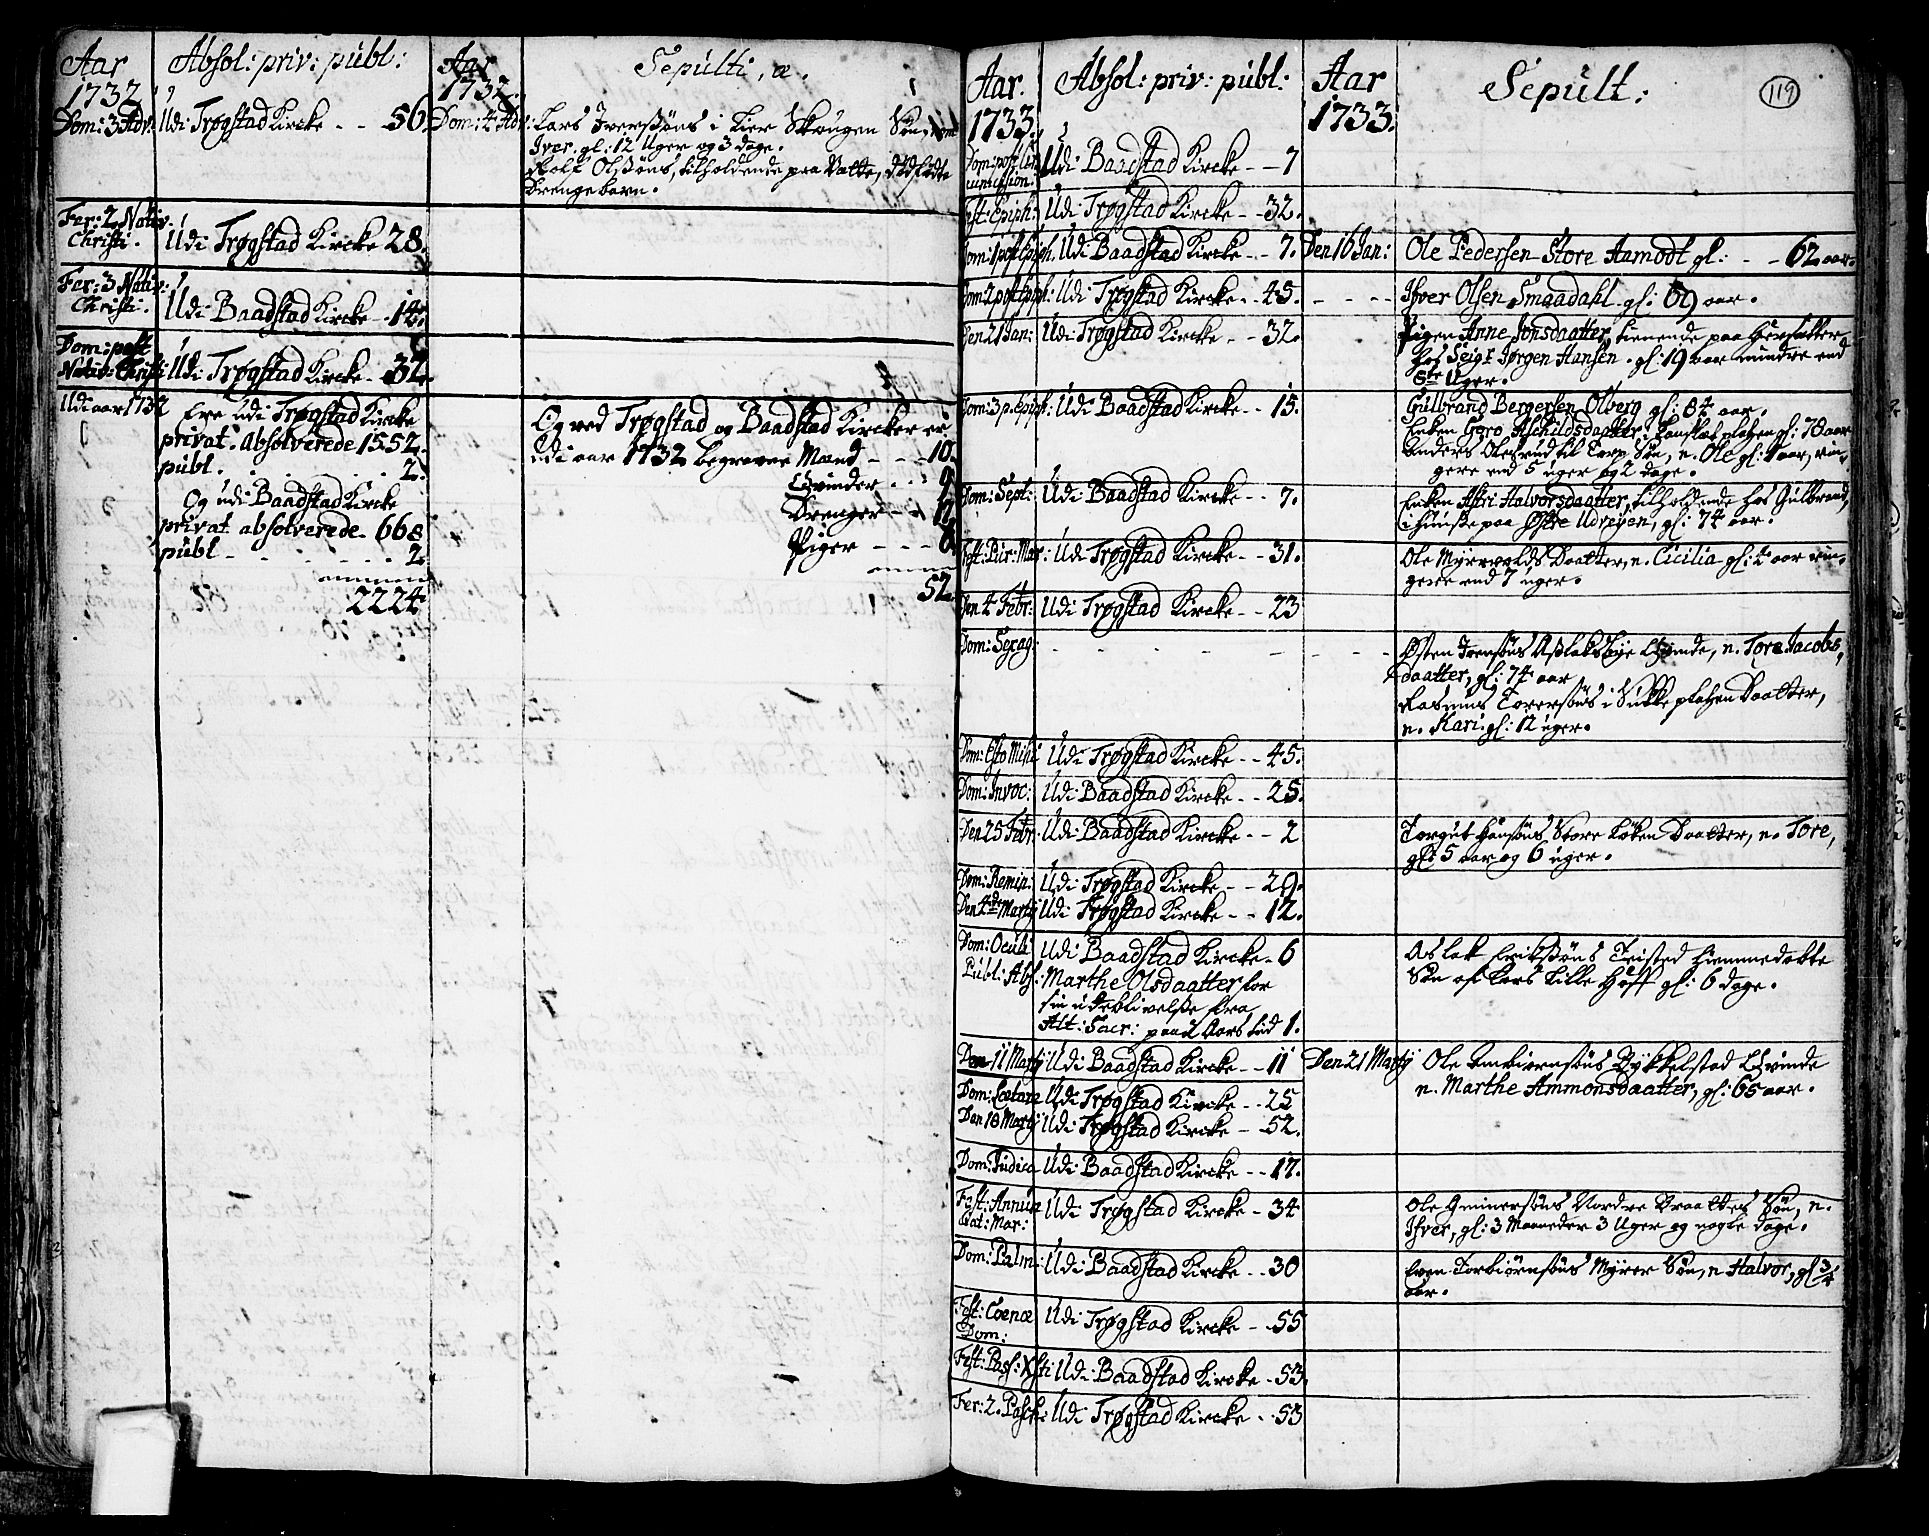 Aar
1732
Absol: priv: publ:
Aar
1732
Sepulti, æ.
Dom: 3 Adv:
Udi Trøgstad Kircke - - 56
Dom: 4 Adv:
Lars Iverssøns i Lier Skougen Søn, n:
Iver, gl: 12 Uger og 3 dage.
Rolf Olssøns, tilholdende paa Datte, dødfødte
Drengebarn.
Fer: 2 Nativ:
Christi.
Udi Trøgstad Kircke 28.
Fer: 3 Nativ:
Christi.
Udi Baadstad Kircke - 14.
Dom: post
Nativ: Christi
Udi Trøgstad Kircke - 32.
Udi aar 1732
Ere udi Trøgstad Kircke
privat. absolverede 1552.
publ. - - - - 2.
Og udi Baadstad Kircke
privat absolverede 668
publ - - - - 2
2224
Og ved Trøgstad og Baadstad Kircker er
udi aar 1732 begraven Mænd - - - 10.
Qvinder - - - 9
Drenger - - 17
Piger - - -
52.
119
Aar.
1733.
Absol: priv: publ:
Aar
1733.
Sepult:
Dom: post Cir-
cumcision.
Udi Baadstad Kircke - - 7
Fest: Epiph:
Udi Trøgstad Kircke - - 32.
Dom: 1 post Epiph.
Udi Baadstad Kircke - - 7.
Den 16 Jan:
Ole Pedersen Store Aamodt gl: - - 62 aar.
Dom: 2 post Epiph:
Udi Trøgstad Kircke - - 45.
- - - -
Ifver Olsen Smaadahl gl: 69 aar.
Den 21 Jan:
Udi Trøgstad Kircke - - 32.
Pigen Anne Jonsdaatter, tienende paa
hos Seigr Jørgen Hansen. gl: 19 aar mindre end
8te Uger.
Dom: 3 p. Epiph:
Udi Baadstad Kircke - - 15.
Gulbrand Bergersen Olberg gl: 84 aar.
Enken Goro Aschildsdaatter, platzen gl: 78 aar
Anders Olesrud til Torp Søn, n. Ole gl: 1 aar, rin-
gere end 5 uger og 2 dage.
Dom: Sept:
Udi Baadstad Kircke - - 7.
Enken Astri Halvorsdaatter, tilholdende hos Gulbrand,
i huuse paa Østre Udrøyen, gl: 74 aar.
Fest: Pur: Mar:
Udi Trøgstad Kircke - - 31.
Ole Myrvolds Daatter, n. Cicilia gl: 2 aar rin-
gere end 7 uger.
Den 4 Febr:
Udi Trøgstad Kircke - - 23
Dom: Sexag:
- - - -
Østen Iverssøns Asslaksbye Qvinde, n. Tore Jacobs-
daatter, gl: 74 aar
Rasmus Torerssøns i Sukke platzen Daatter,
n. Kari gl: 12 uger.
Dom: Esto Mihi
Udi Trøgstad Kircke - - 45.
Dom: Invoc:
Udi Baadstad Kircke - - 25.
Den 25 Febr.
Udi Baadstad Kircke - - 2
Torgut Hanssøns Store Løken Daatter, n. Tore,
gl: 5 aar og 6 uger.
Dom: Remin:
Udi Trøgstad Kircke - - 29.
Den 4de Martij
Udi Trøgstad Kircke - - 12.
Dom: Oculi
Udi Baadstad Kircke - 6
Publ: Abs:
Marthe Olsdaatter for
sin udeblivelse fra
Alt: Sacr: paa 2 Aars tid 1.
Aslak Erikssøns Teisted hiemmedøbte
Søn af Lars Lille Hoff gl: 6 dage.
Den 11 Martij
Udi Baadstad Kircke - - 11
Den 21 Martij
Ole Embiørnsøns Rykkelstad Qvinde
n. Marthe Ammonsdaatter, gl: 65 aar.
Dom: Lætare
Udi Trøgstad Kircke - - 25
Den 18 Martij
Udi Trøgstad Kircke - - 52.
Dom: Judica
Udi Baadstad Kircke - - 17.
Fest: Annun-
ciat: Mar:
Udi Trøgstad Kircke - - 34
Ole Gunnersøns Nordre Braattes Søn, n.
Ifver, gl: 3 Maaneder 3 Uger og nogle dage.
Dom: Palm:
Udi Baadstad Kircke - - 30
Even Torbiørnsøns Myrer Søn, n Halvor, gl 3/4
aar.
Fest: Coenæ
Dom:
Udi Trøgstad Kircke - - 55
Fest: Pasch: Xsti
Udi Baadstad Kircke - 53
Fer: 2. Pasch:
Udi Trøgstad Kircke - - 53